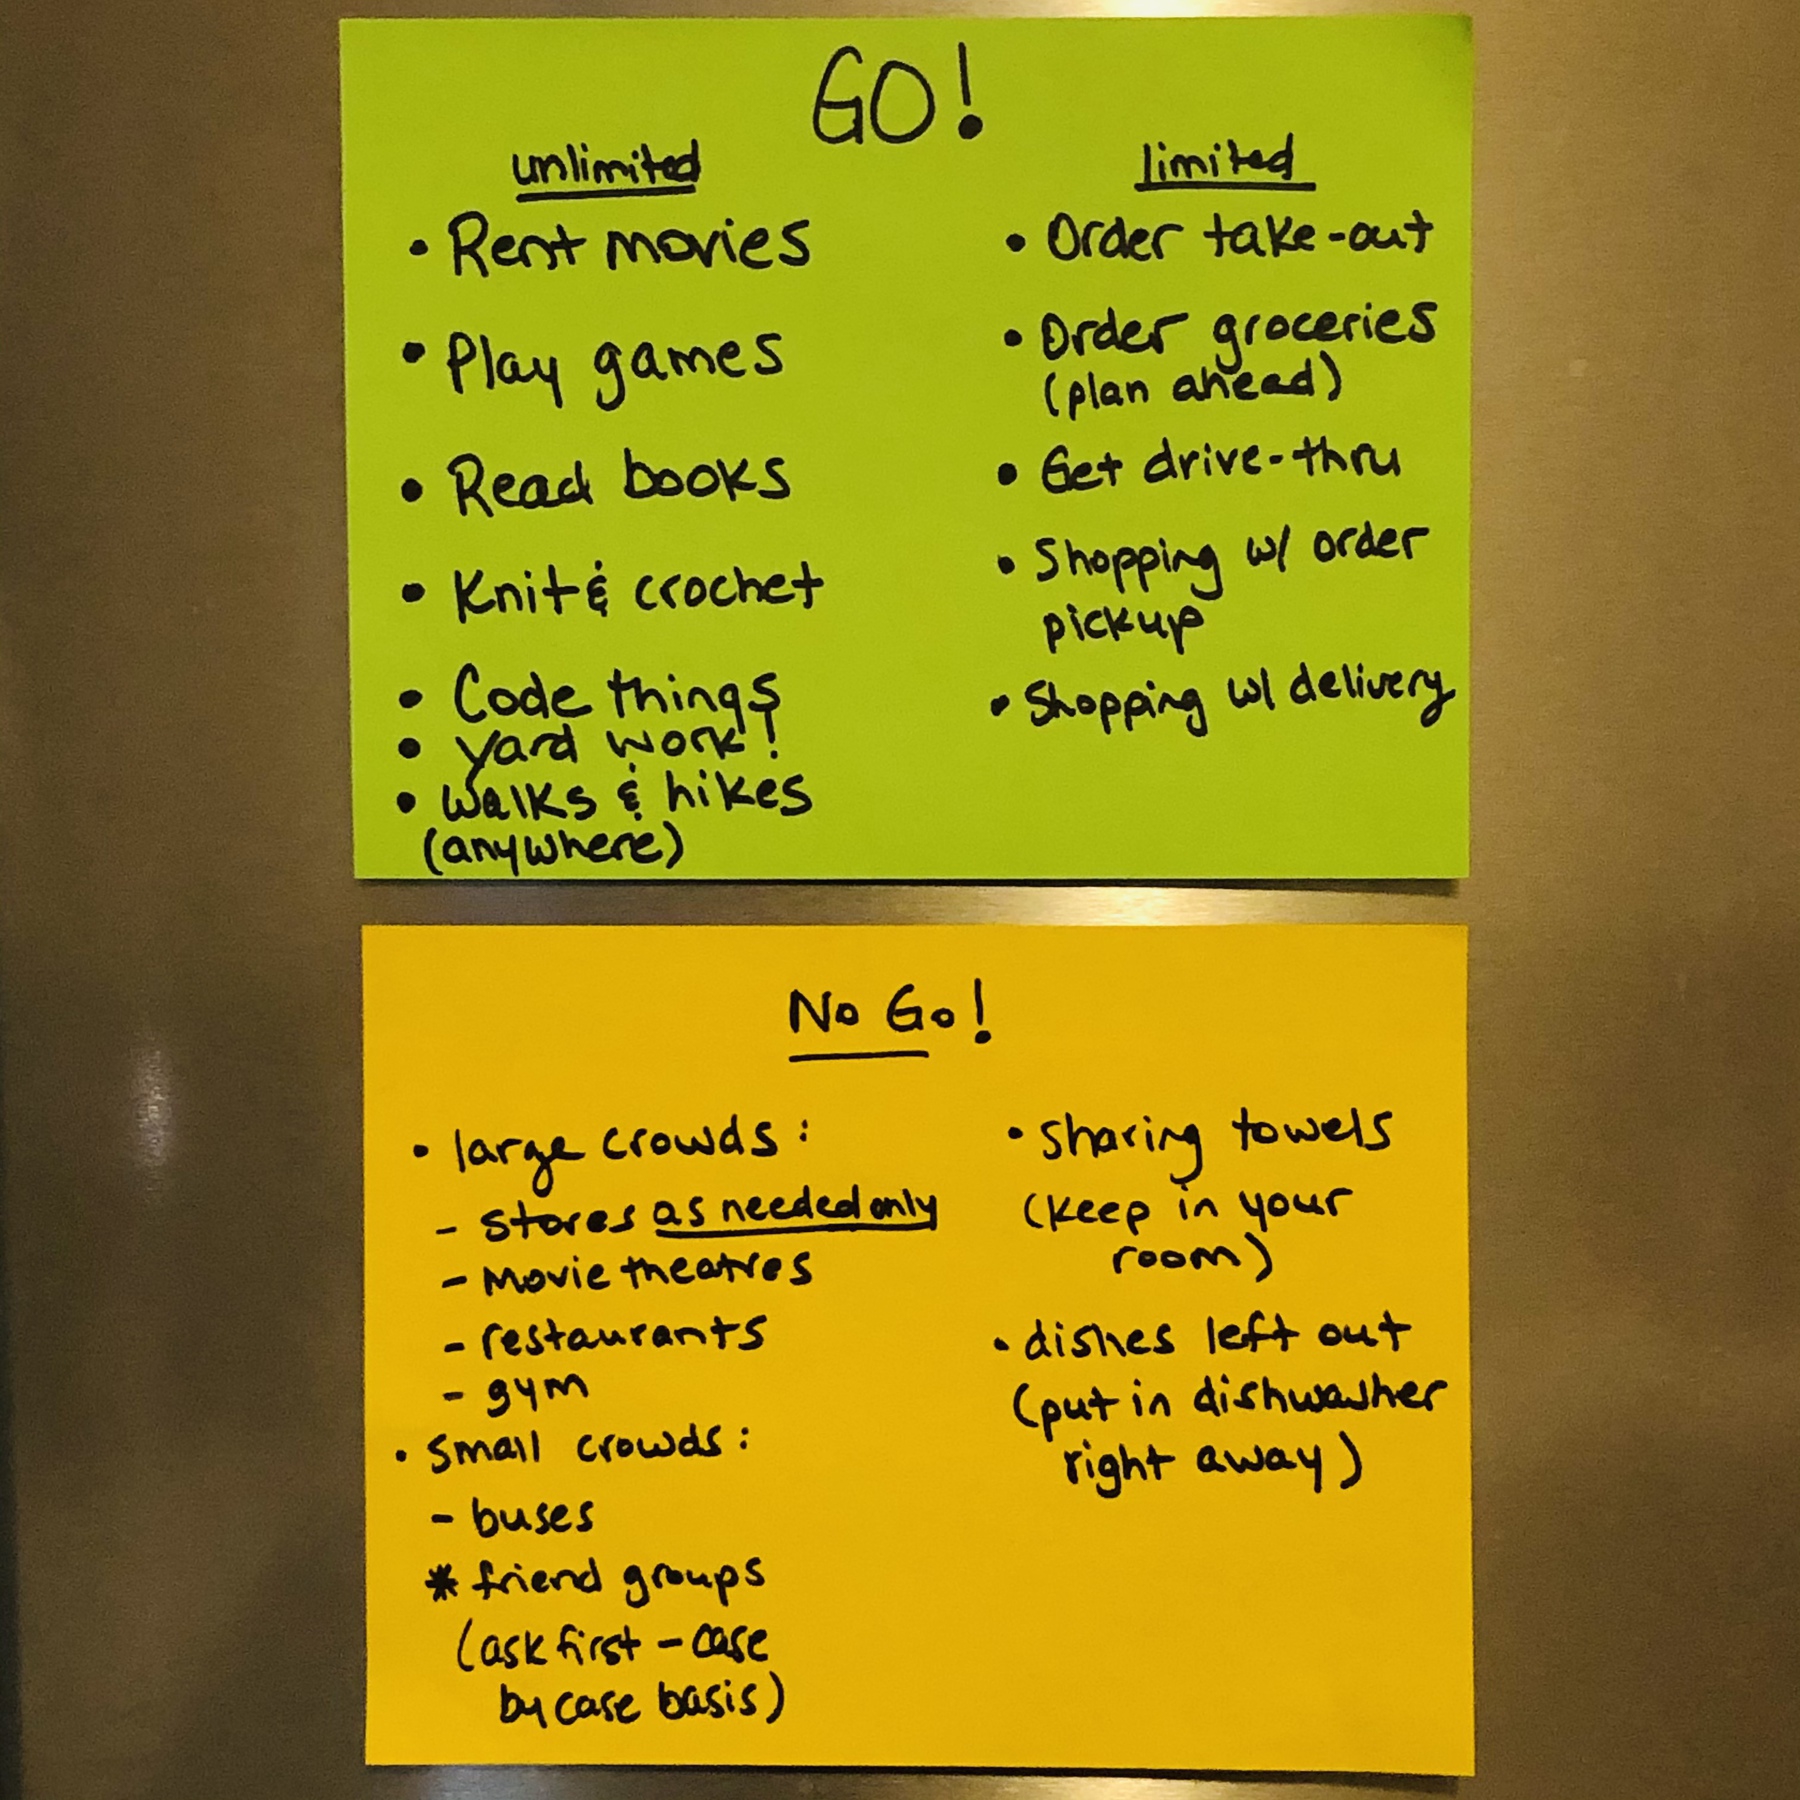 GO!
unlimited
• Rent movies
• Play games
• Read books
• Knit & crochet
• Code things
• Yard work!
• Walks & hikes
(anywhere)
limited
• Order take-out
• Order groceries
(plan ahead)
• Get drive-thru
• Shopping w/ order
pickup
• Shopping w/ delivery
No Go!
• large crowds:
- stores as needed only
- movie theatres
- restaurants
- gym
• small crowds:
- buses
* friend groups
(ask first - case
by case basis)
• sharing towels
(keep in your
room)
• dishes left out
(put in dishwasher
right away)